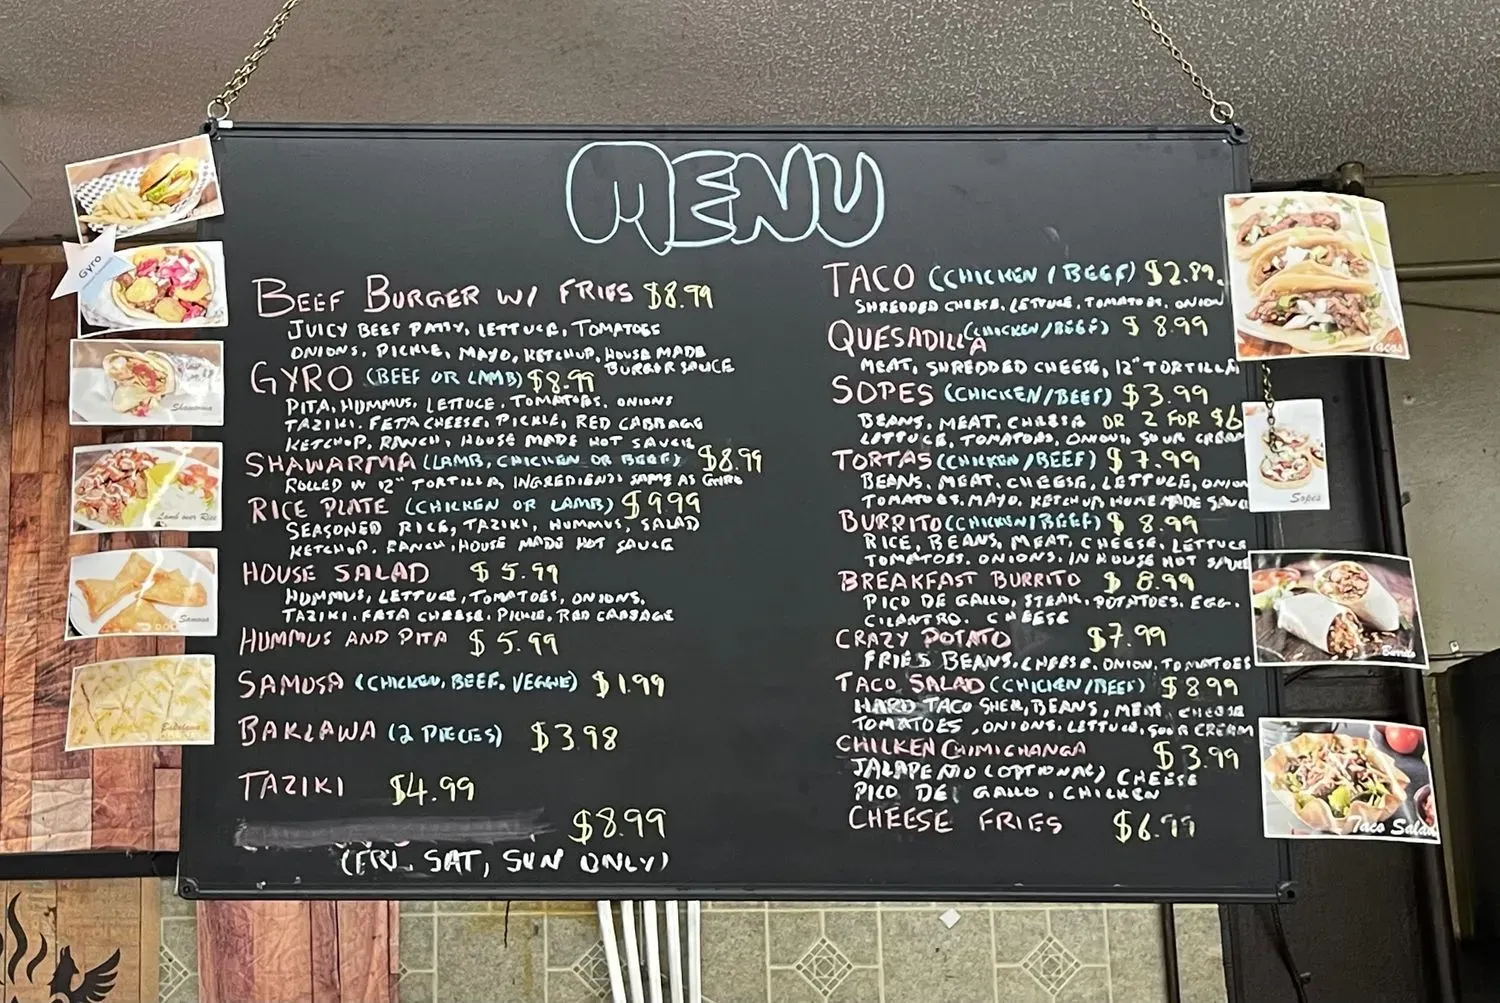 MENU
BEEF BURGER W/ FRIES $8.99
JUICY BEEF PATTY, LETTUCE, TOMATOES
ONIONS, PICKLE, MAYO, KETCHUP, HOUSE MADE
BURGER SAUCE
GYRO (BEEF OR LAMB) $8.99
PITA, HUMMUS, LETTUCE, TOMATOES, ONIONS
TAZIKI, FETA CHEESE, PICKLE, RED CABBAGE
KETCHUP, RANCH, HOUSE MADE HOT SAUCE
SHAWARMA (LAMB, CHICKEN OR BEEF) $8.99
ROLLED IN 12" TORTILLA, INGREDIENTS SAME AS GYRO
RICE PLATE (CHICKEN OR LAMB) $9.99
SEASONED RICE, TAZIKI, HUMMUS, SALAD
KETCHUP, RANCH, HOUSE MADE HOT SAUCE
HOUSE SALAD $5.99
HUMMUS, LETTUCE, TOMATOES, ONIONS,
TAZIKI, FETA CHEESE, PICKLE, RED CABBAGE
HUMMUS AND PITA $5.99
SAMOSA (CHICKEN, BEEF, VEGGIE) $1.99
BAKLAWA (2 PIECES) $3.98
TAZIKI $4.99
$8.99
(FRI, SAT, SUN ONLY)
TACO (CHICKEN/BEEF) $2.89
SHREDDED CHEESE, LETTUCE, TOMATOES, ONION
QUESADILLA (CHICKEN/BEEF) $8.99
MEAT, SHREDDED CHEESE, 12" TORTILLA
SOPES (CHICKEN/BEEF) $3.99
BEANS, MEAT, CHEESE OR 2 FOR $6
LETTUCE, TOMATOES, ONIONS, SOUR CREAM
TORTAS (CHICKEN/BEEF) $7.99
BEANS, MEAT, CHEESE, LETTUCE, ONION
TOMATOES, MAYO, KETCHUP, HOME MADE SAUCE
BURRITO (CHICKEN/BEEF) $8.99
RICE, BEANS, MEAT, CHEESE, LETTUCE
TOMATOES, ONIONS, IN HOUSE HOT SAUCE
BREAKFAST BURRITO $8.99
PICO DE GALLO, STEAK, POTATOES, EGG,
CILANTRO, CHEESE
CRAZY POTATO $7.99
FRIES BEANS, CHEESE, ONION, TOMATOES
TACO SALAD (CHICKEN/BEEF) $8.99
HARD TACO SHELL, BEANS, MEAT, CHEESE
TOMATOES, ONIONS, LETTUCE, SOUR CREAM
CHICKEN CHIMICHANGA $3.99
JALAPENO (OPTIONAL) CHEESE
PICO DE GALLO, CHICKEN
CHEESE FRIES $6.99
Gyro
Shawarma
Lamb over Rice
Samosa
Baklawa
Tacos
Sopes
Burrito
Taco Salad